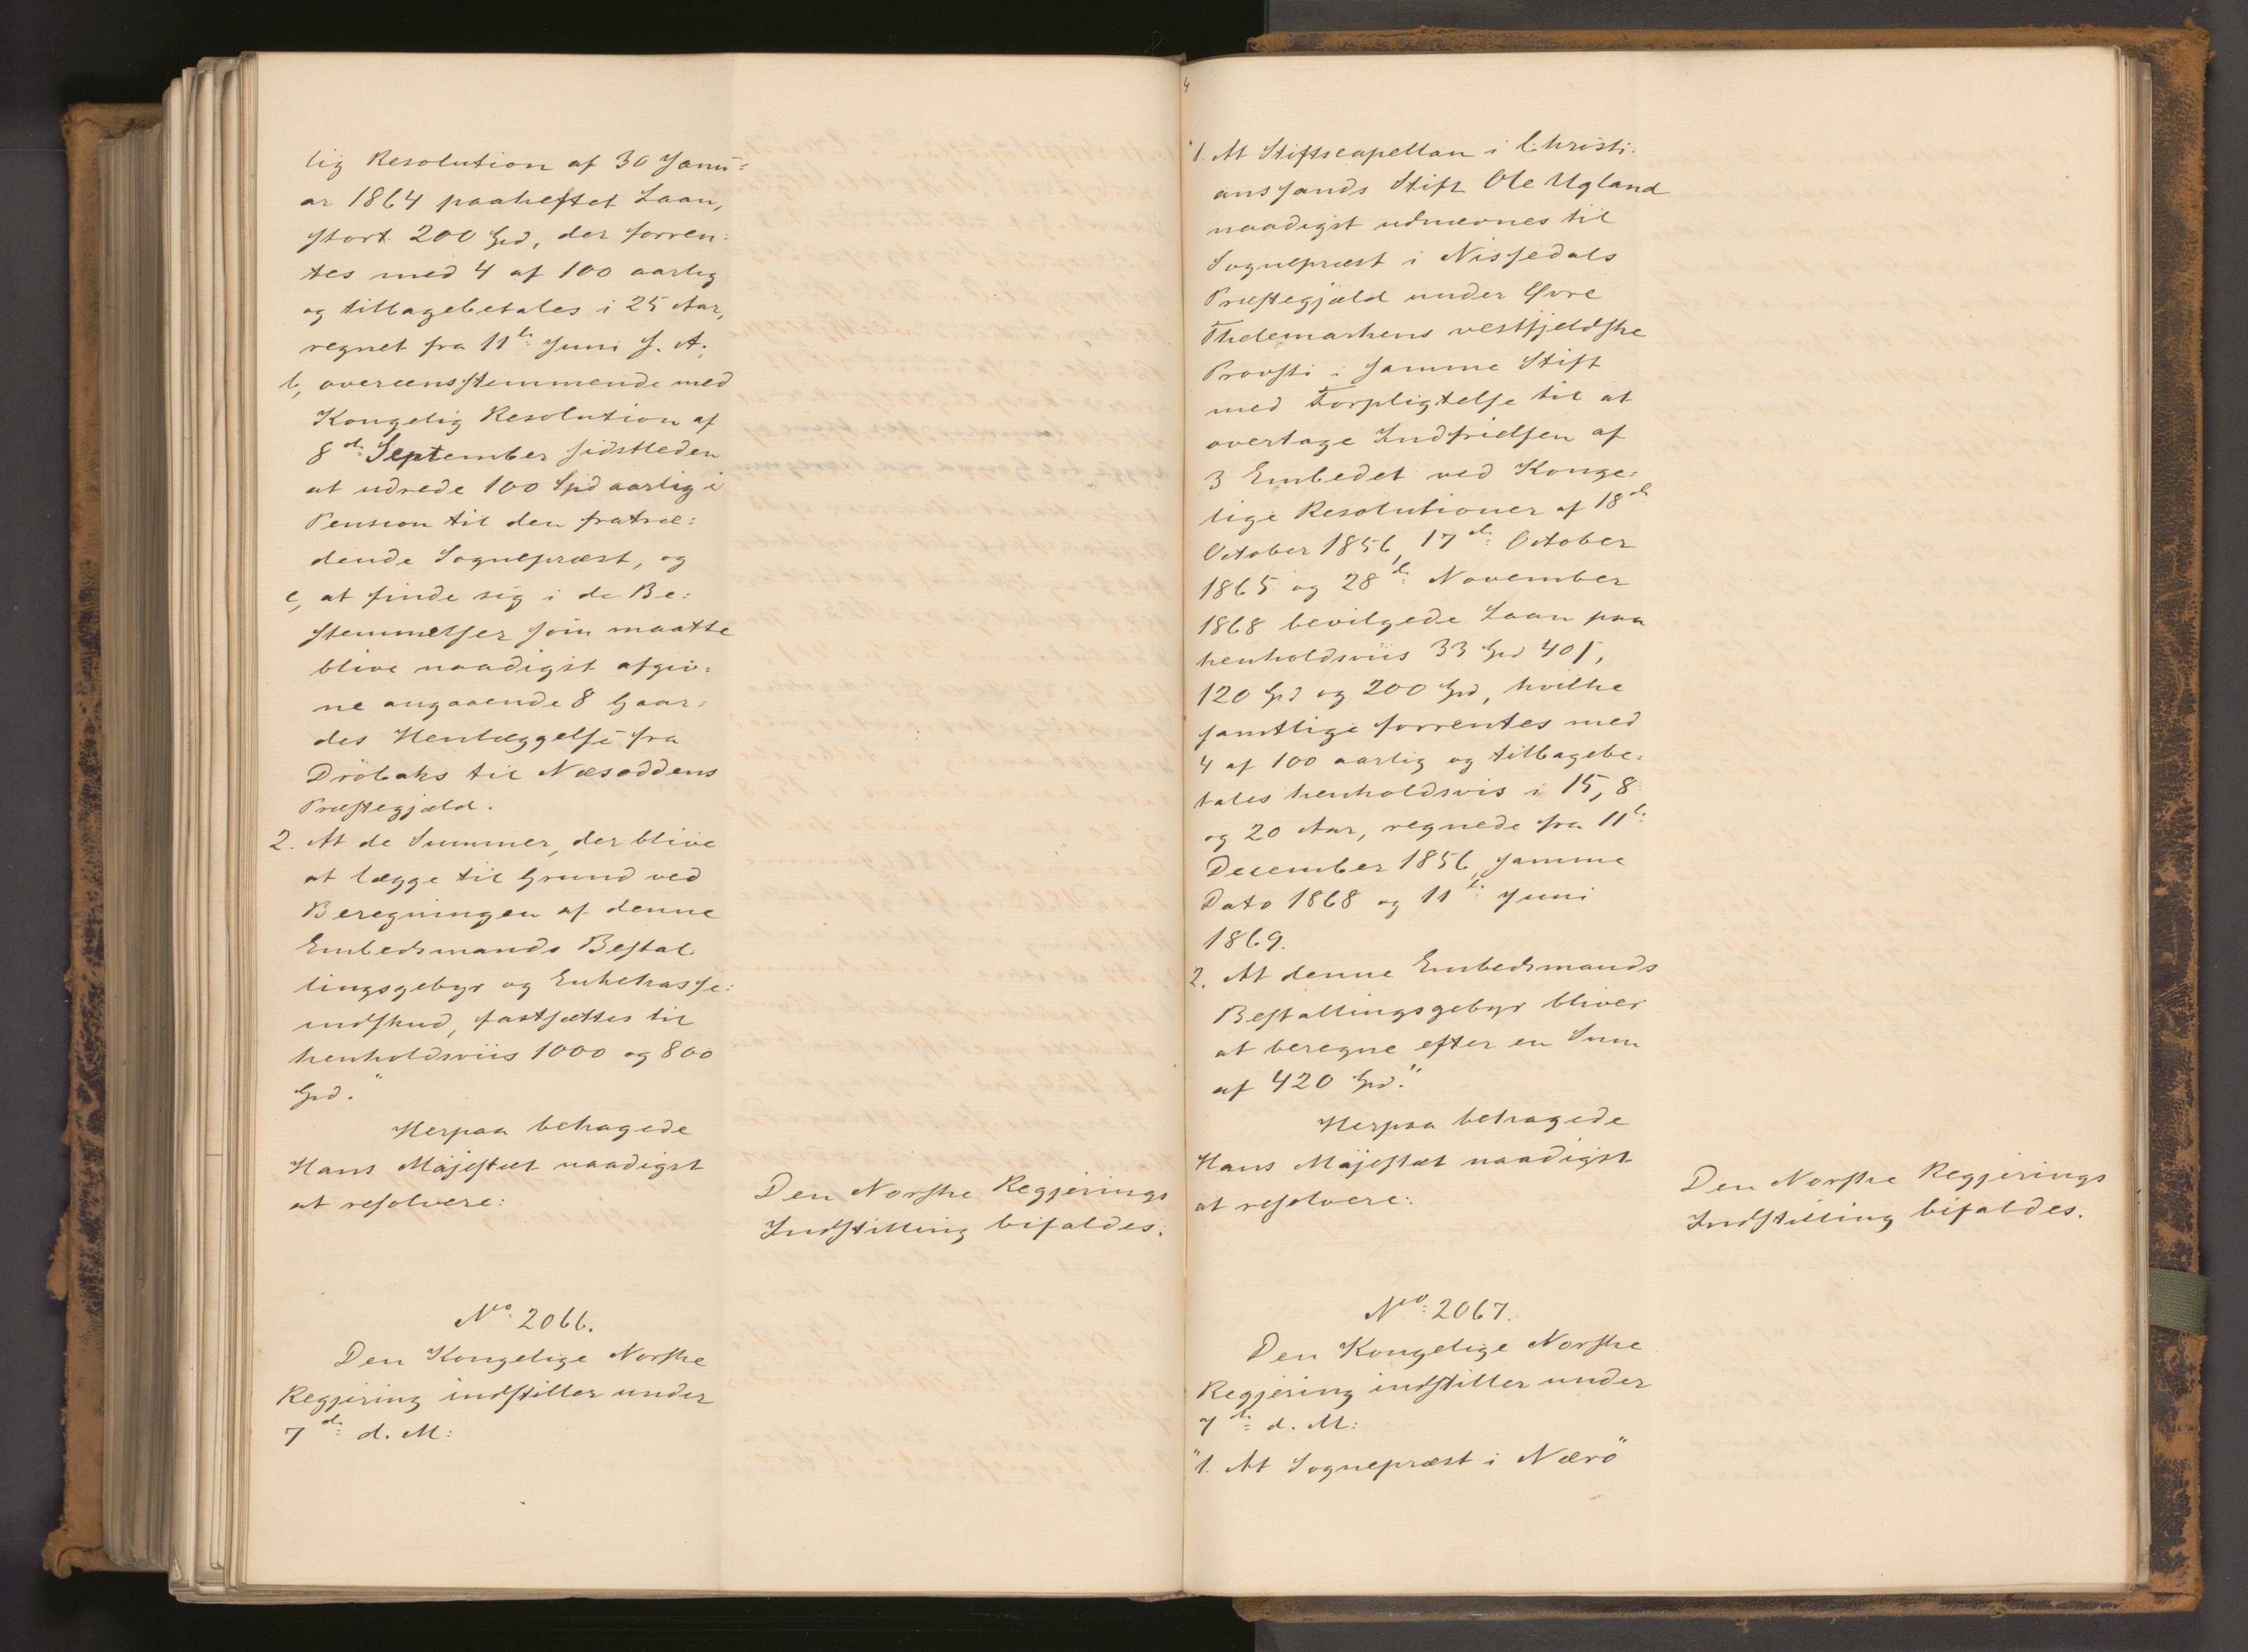 lig Resolution af 30 Janu=
ar 1864 paaheftet Laan,
stort 200 Spd, der forren:
tes med 4 af 100 aarlig
og tilbagebetales i 25 Aar,
regnet fra 11te Juni s. A.
b, overeensstemmende med
Kongelig Resolution af
8de September sidstleden
at udrede 100 Spd aarlig i
Pension til den fratræ:
dende Sognepræst, og
c, at finde sig i de Be:
stemmelser som maatte
blive naadigst afgiv:
ne angaaende 8 Gaar:
des Henlæggelse fra
Dröbaks til Næsoddens
Præstegjæld.
2. At de Summer, der blive
at lægge til Grund ved
Beregningen af denne
Embedsmands Bestal:
lingsgebyr og Enkekasse:
indskud, fastsættes til
henholdsviis 1000 og 800
Spd."
Herpaa behagede
Hans Majestæt naadigst
at resolvere:
Den Norske Regjerings
Indstilling bifaldes.
No. 2066.
Den Kongelige Norske
Regjering indstiller under
7de d. M:
4
"1. At Stiftscapellan i Christi:
anssands Stift Ole Ugland
naadigst udnævnes til
Sognepræst i Nissedals
Præstegjæld under Øvre
Thelemarkens vestfjeldske
Provsti i samme Stift
med Forpligtelse til at
overtage Indfrielsen af
3 Embedet ved Konge:
lige Resolutioner af 18de
October 1856, 17de October
1865 og 28de November
1868 bevilgede Laan paa
henholdsviis 33 Spd 40 s,
120 Spd og 200 Spd, hvilke
samtlige forrentes med
4 af 100 aarlig og tilbagebe:
tales henholdsvis i 15, 8
og 20 Aar, regnede fra 11te
December 1856, samme
Dato 1868 og 11te Juni
1869.
2. At denne Embedsmands
Bestallingsgebyr bliver
at beregne efter en Sum
af 420 Spd."
Herpaa behagede
Hans Majestæt naadigst
at resolvere:
Den Norske Regjerings
Indstilling bifaldes.
No. 2067.
Den Kongelige Norske
Regjering indstiller under
7de d. M:
"1. At Sognepræst i Nærö